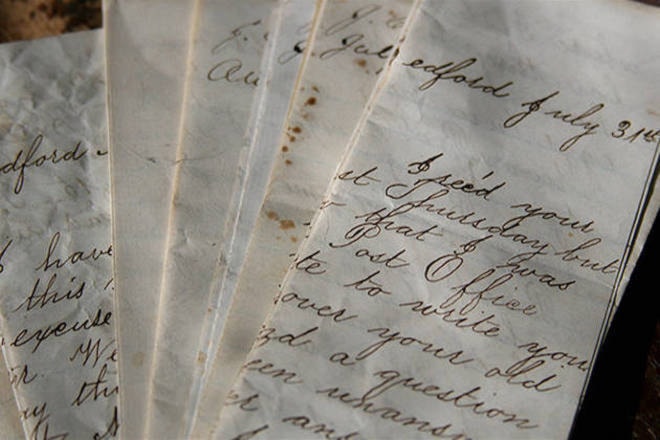 dford
I have
this
excuse
r. We
ay thi
J.
Au
J.
Jul
edford July 31st
I rec'd your
st Thursday but
r that I was
Post Office
te to write you
over your old
nd a question
een unansw
er an